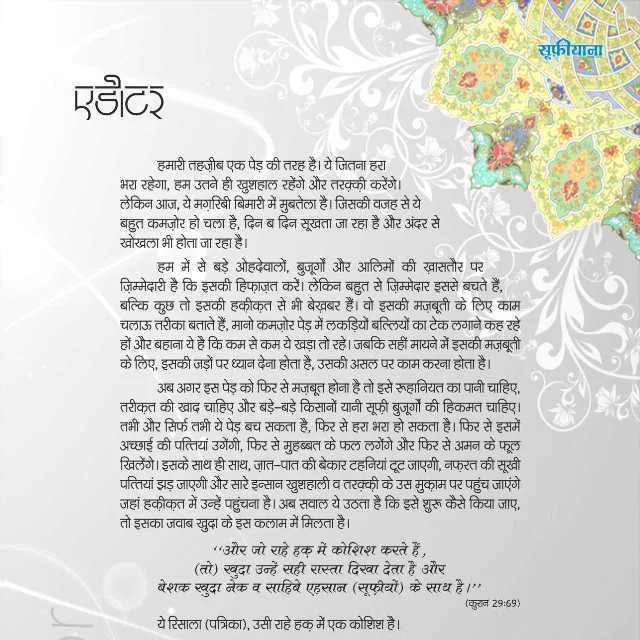 सूफ़ीयाना
एडीटर
हमारी तहज़ीब एक पेड़ की तरह है। ये जितना हरा
भरा रहेगा, हम उतने ही खुशहाल रहेंगे और तरक़्क़ी करेंगे।
लेकिन आज, ये मग़रिबी बिमारी में मुबतेला है। जिसकी वजह से ये
बहुत कमज़ोर हो चला है, दिन ब दिन सूखता जा रहा है और अंदर से
खोखला भी होता जा रहा है।
हम में से बड़े ओहदेवालों, बुजूर्गों और आलिमों की ख़ासतौर पर
ज़िम्मेदारी है कि इसकी हिफ़ाज़त करें। लेकिन बहुत से ज़िम्मेदार इससे बचते हैं,
बल्कि कुछ तो इसकी हक़ीक़त से भी बेख़बर हैं। वो इसकी मज़बूती के लिए काम
चलाऊ तरीका बताते हैं, मानो कमज़ोर पेड़ में लकड़ियों बल्लियों का टेक लगाने कह रहे
हों और बहाना ये है कि कम से कम ये खड़ा तो रहे। जबकि सहीं मायने में इसकी मज़बूती
के लिए, इसकी जड़ों पर ध्यान देना होता है, उसकी असल पर काम करना होता है।
अब अगर इस पेड़ को फिर से मज़बूत होना है तो इसे रूहानियत का पानी चाहिए,
तरीक़त की खाद चाहिए और बड़े-बड़े किसानों यानी सूफ़ी बुजूर्गों की हिकमत चाहिए।
तभी और सिर्फ तभी ये पेड़ बच सकता है, फिर से हरा भरा हो सकता है। फिर से इसमें
अच्छाई की पत्तियां उगेंगी, फिर से मुहब्बत के फल लगेंगे और फिर से अमन के फूल
खिलेंगे। इसके साथ ही साथ, ज़ात-पात की बेकार टहनियां टूट जाएगी, नफ़रत की सूखी
पत्तियां झड़ जाएगी और सारे इन्सान खुशहाली व तरक़्क़ी के उस मुक़ाम पर पहुंच जाएंगे
जहां हक़ीक़त में उन्हें पहुंचना है। अब सवाल ये उठता है कि इसे शुरू कैसे किया जाए,
तो इसका जवाब खुदा के इस कलाम में मिलता है।
‘‘और जो राहे हक़ में कोशिश करते हैं,
(तो) खुदा उन्हें सही रास्ता दिखा देता है और
बेशक खुदा नेक व साहिबे एहसान (सूफ़ीयों) के साथ है।’’
(क़ुरान 29:69)
ये रिसाला (पत्रिका), उसी राहे हक़ में एक कोशिश है।